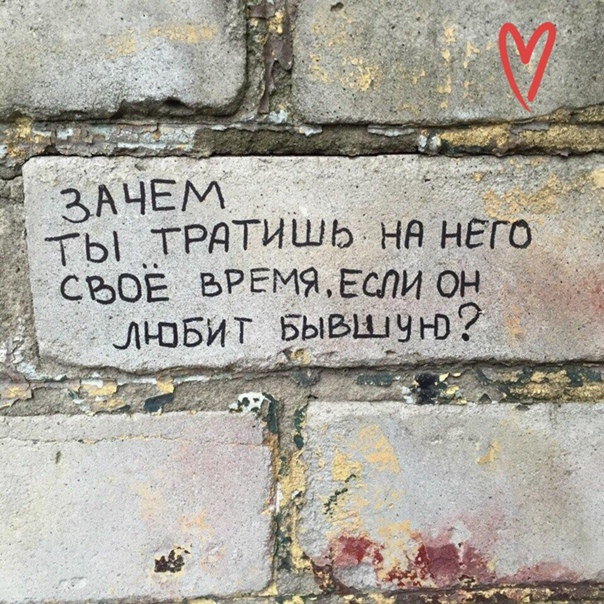 ЗАЧЕМ
ТЫ ТРАТИШЬ НА НЕГО
СВОЁ ВРЕМЯ, ЕСЛИ ОН
ЛЮБИТ БЫВШУЮ?